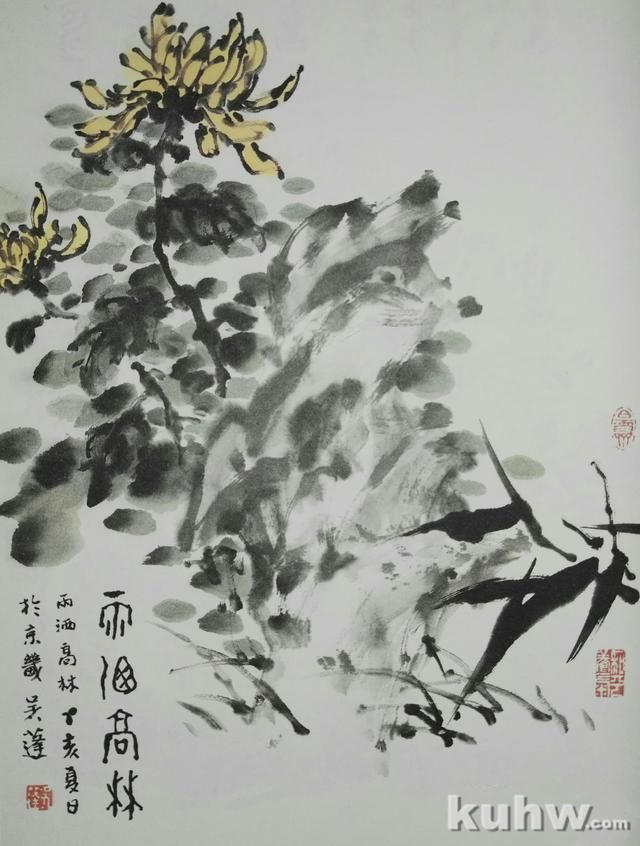 雨洒高林
雨洒高林 丁亥夏日
於京畿 吴蓬
kuhw.com